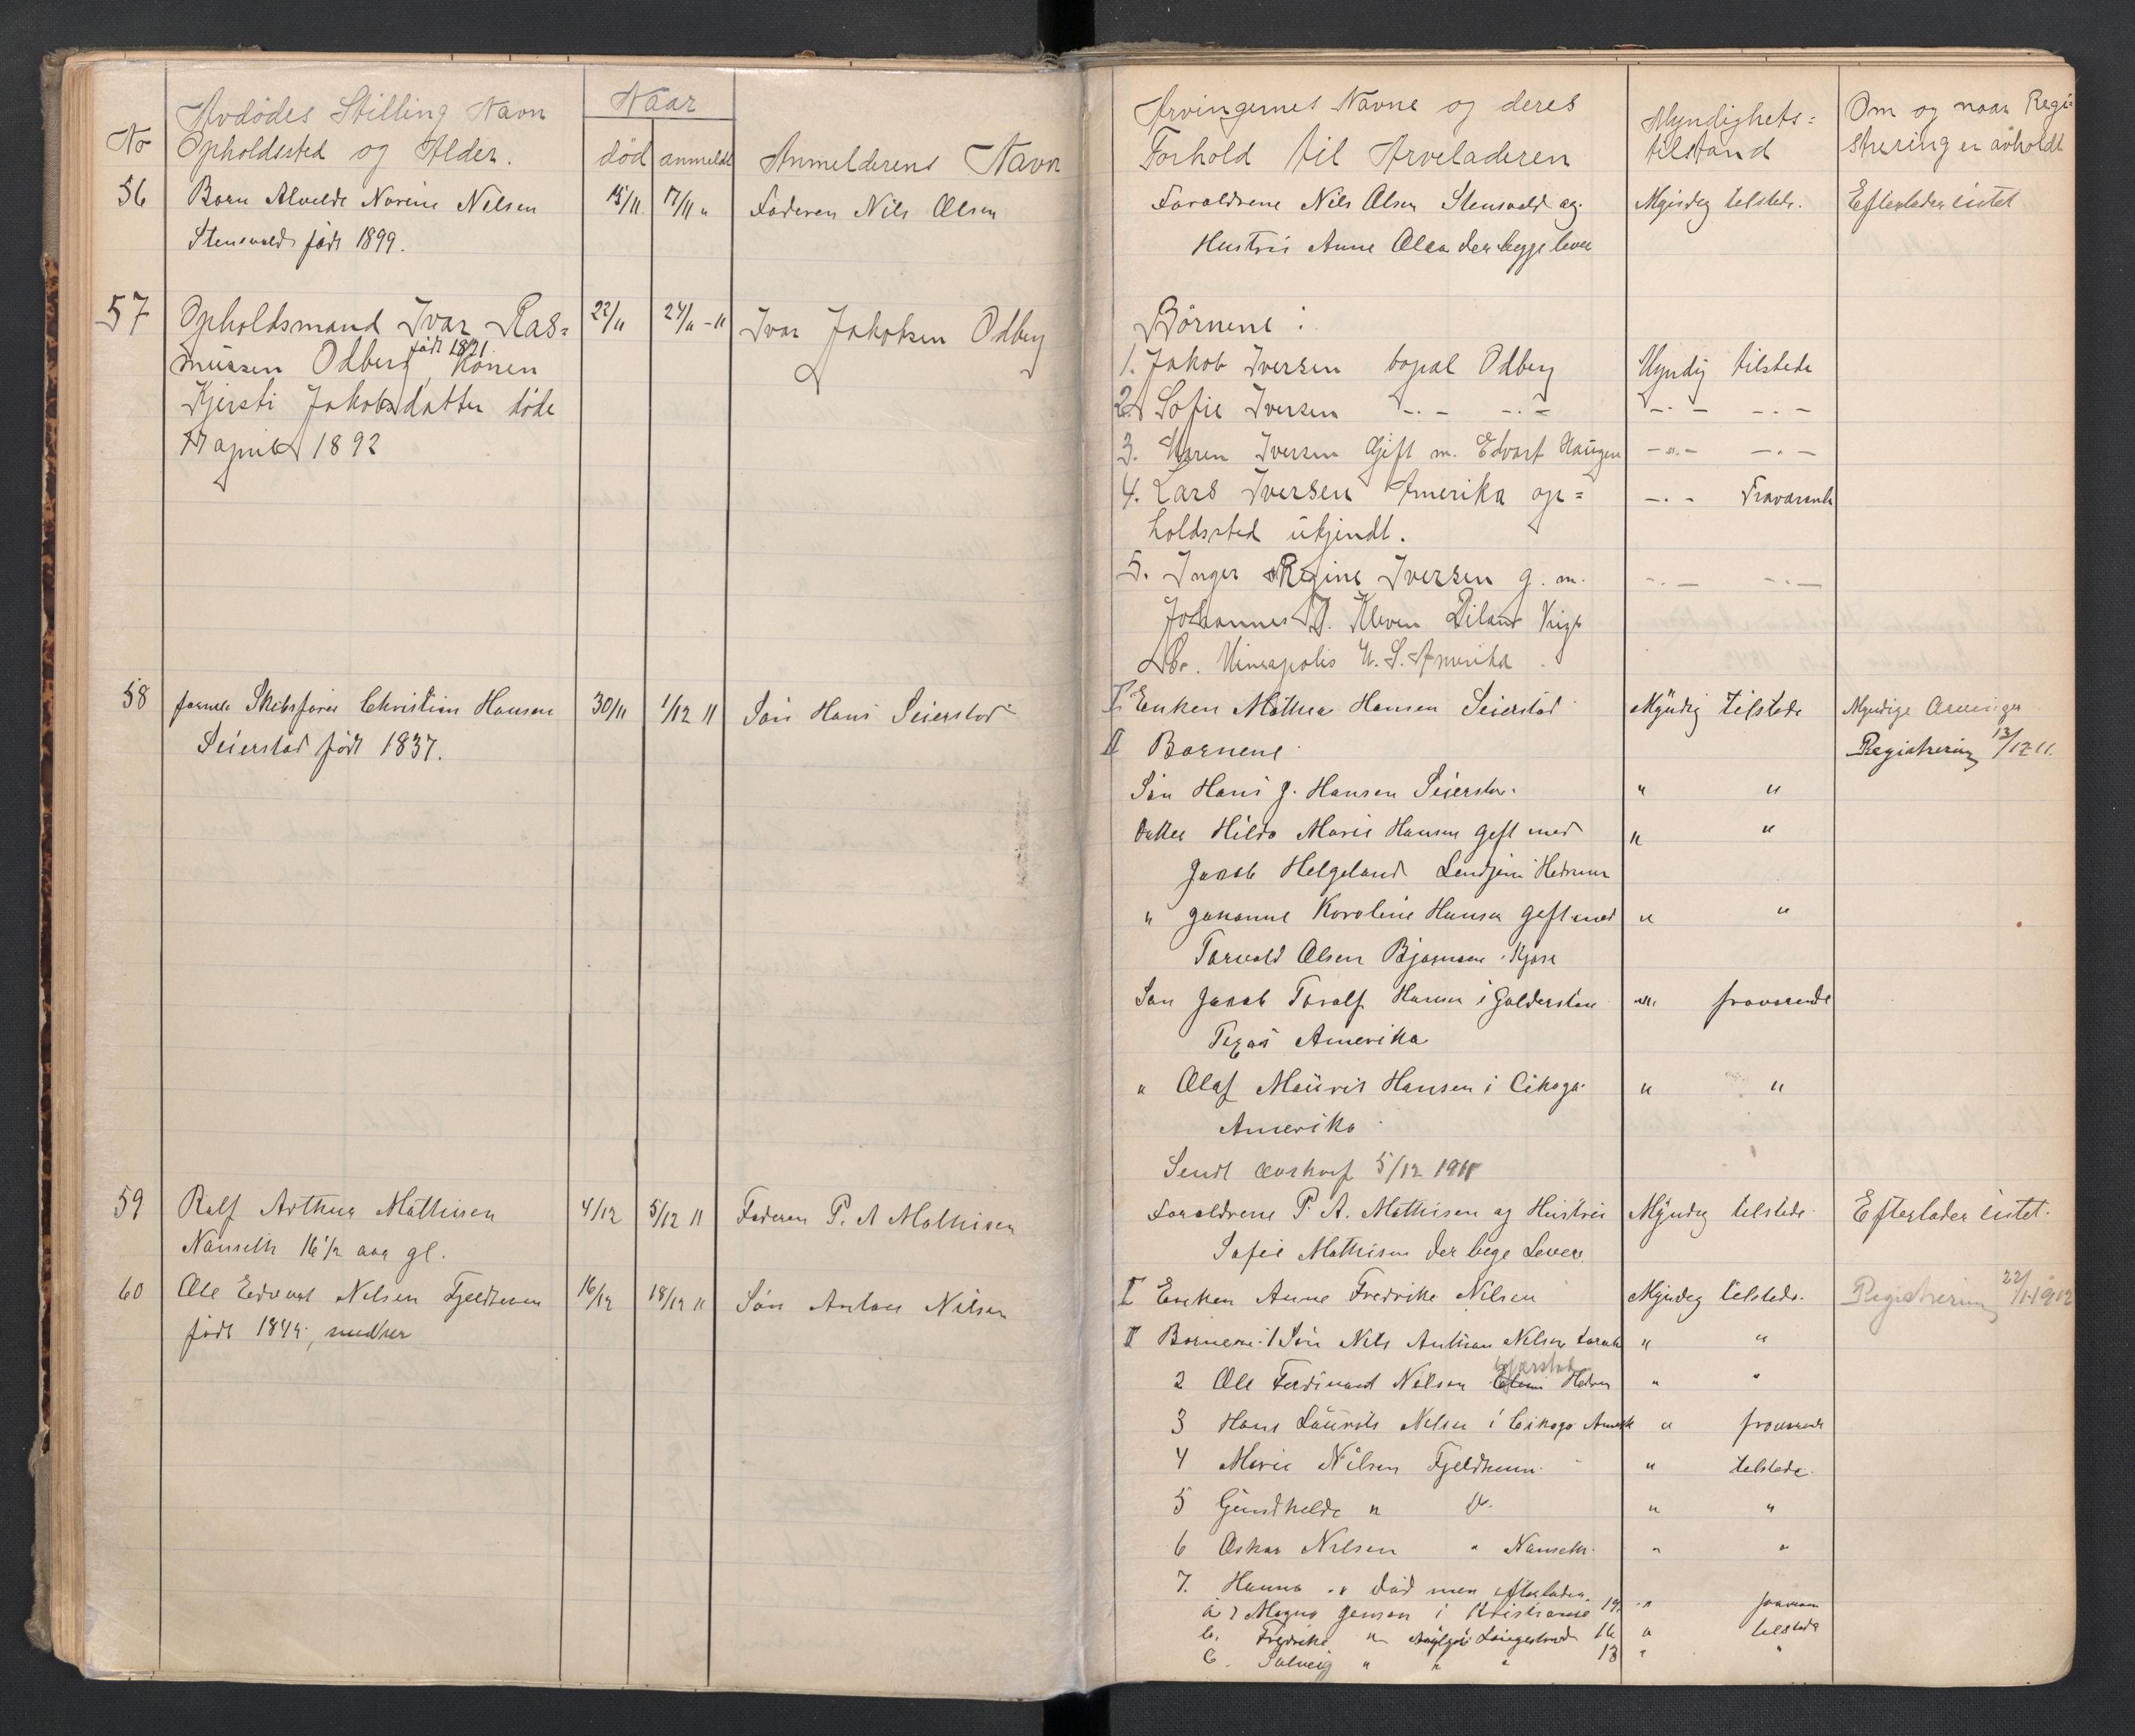 No
Avdödes Stilling Navn
Opholdssted og Alder.
Naar
död anmeldt
Anmelderens Navn
56 Barn Alvelde Norine Nilsen 15/11. 17/11 " Faderen Nils Olsen
Stensvold född 1899.
57 Opholdsmand Ivar Ras= 22/11 24/11 - 11 Ivar Jakobsen Odberg
født 1821
mussen Odberg, Konen
Kjersti Jakobsdatter döde
17 april 1892
58 Skibsfører Christian Hansen 30/11 1/12 11 Søn Hans Seierstad
Seierstad født 1837.
59 Ralf Arthur Mathisen 4/12 5/12 11 Faderen P. A Mathisen
Nanseth 16 1/2 aar gl.
60 Ole Edvart Nilsen Fjeldheim 16/12 18/12 11 Søn Anton Nilsen
født 1844,
Arvingernes Navne og deres
Forhold til Arveladeren
Myndighets=
tilstand
Om og naar Regi=
strering er avholdt
Foraldrene Nils Olsen Stensvold og Myndig tilstede. Efterlader intet
Hustru Anne Olsen der begge lever
Börnene :
1. Jakob Iversen bopæl Odberg Myndig tilstede
2 Sofie Iversen -.- -.- -.- -.-
3. Maren Iversen Gift m. Edvart Haugen -"- -.-
4. Lars Iversen Amerika op= -.- Fraværende
holdssted ukjendt.
5. Inger Regine Iversen g. m. -.- -.-
Johannes Kleven
Mineapolis U. S. Amerika.
I Enken Mathea Hansen Seierstad Myndig tilstede Myndige Arvinger
II Børnene Registrering 13/12 11.
Søn Hans J. Hansen Seierstad " "
Datter Hilda Marie Hansen gift med " "
Jacob Helgeland i Hedrum
" Johanne Karoline Hansen gift med " "
Torvald Olsen Bjørnem i Kjose
Søn Jacob Toralf Hansen i Golderston " fraværende
Texas Amerika
" Olaf Mauris Hansen i Cikago " "
Amerika
Sendt 5/12 1911
Foraldrene P. A. Mathisen og Hustru Myndig tilstede Efterlader intet.
Sofie Mathisen der bege Lever
I Enken Anne Fredrike Nilsen Myndig tilstede. Registrering 22/1 1912
II Børnene: 1 Søn Nils Anthon Nilsen " "
2 Ole Ferdinand Nilsen Hedrum " "
3 Hans Laurits Nilsen i Cikago Amerik " fraværende
4 Marie Nilsen Fjeldheim " tilstede.
5 Gundhilde " Do. " "
6 Oskar Nilsen " Nanseth. " "
7. Hanna " død men efterlader
a Magna Jensen i Kristiania 19 "
b. Fredrike " Langestrand 16 " tilstede
c. Solveig " " " 13 " "